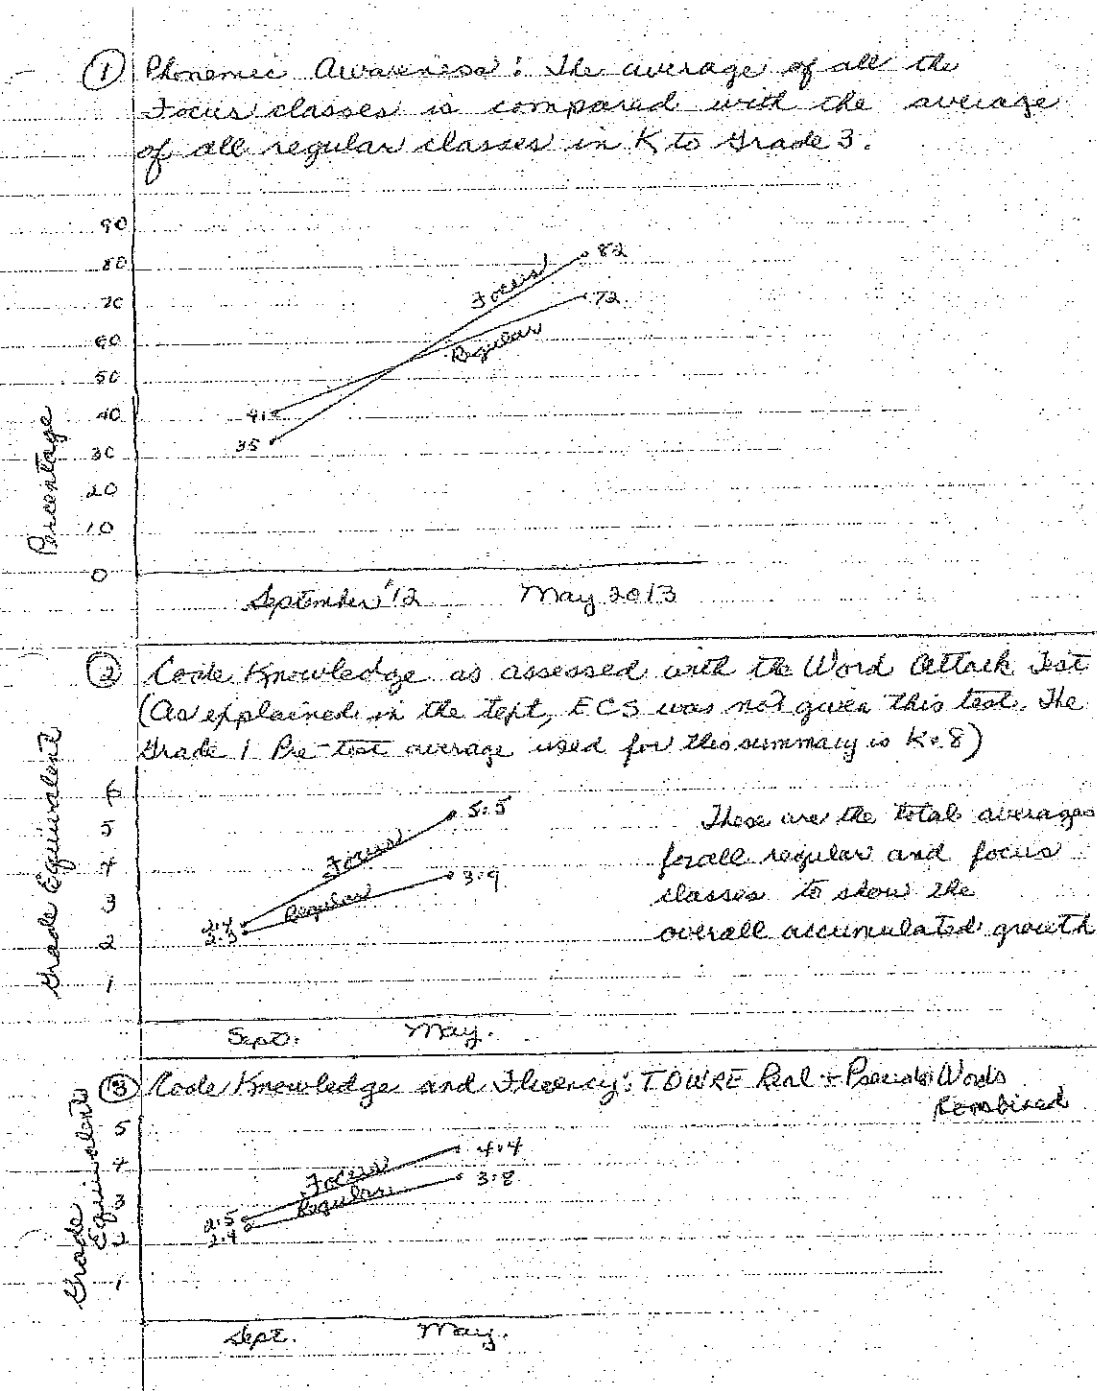 ① Phonemic Awareness: The average of all the
Focus classes is compared with the average
of all regular classes in K to Grade 3.
Percentage
90
80
70
60
50
40
30
20
10
0
Focus
82
Regular
72
41
35
September '12 May 2013
② Code Knowledge as assessed with the Word Attack Test
(As explained in the text, ECS was not given this test. The
Grade 1 Pre-test average used for this summary is K.8)
Grade Equivalent
6
5
4
3
2
1
Focus
5.5
Regular
3.9
2.4
2.3
These are the total averages
for all regular and focus
classes to show the
overall accumulated growth
Sept. May.
③ Code Knowledge and Fluency: TOWRE Real + Pseudo Words
Combined
Grade
Equivalents
5
4
3
2
1
Focus
4.4
Regular
3.8
2.5
2.4
Sept. May.